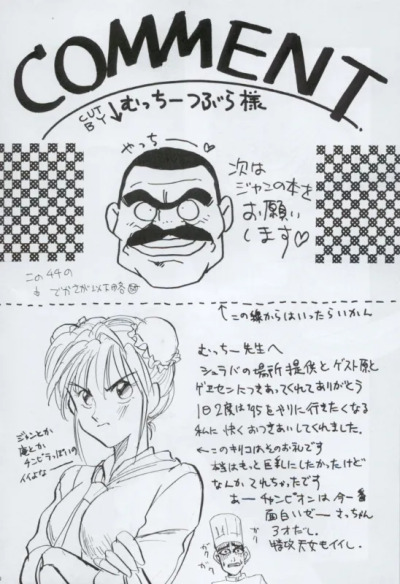 COMMENT
CUT BY ↓ むっちーつぶら様
やっちー♡
次は
ジャンの本を
お願い
します♡
この44の
でかさが以下略
↑この線からはいったらいかん
むっちー先生へ
シュラバの場所提供とゲスト原と
ゲエセンにつきあってくれてありがとう
1日2度は'95をやりに行きたくなる
私に快くおつきあいしてくれました。
←このキリコはそのお礼です
本当はもっと巨乳にしたかったけど
なんかこれちゃったです
あーチャンピオンは今一番
面白いぜーさっちゃん
3才だし。
特攻天女もイイし。
ジャンとか
庵とか
チンピラっぽいの
イイよな
ガク
ガク
ガク